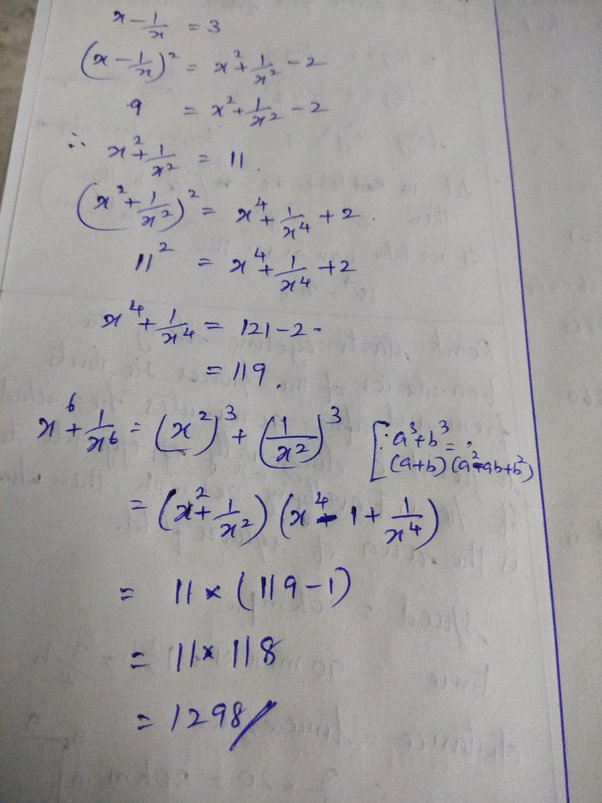 x - 1/x = 3
(x - 1/x)² = x² + 1/x² - 2
9 = x² + 1/x² - 2
∴ x² + 1/x² = 11.
(x² + 1/x²)² = x⁴ + 1/x⁴ + 2.
11² = x⁴ + 1/x⁴ + 2
x⁴ + 1/x⁴ = 121 - 2.
= 119.
x⁶ + 1/x⁶ = (x²)³ + (1/x²)³ [∵ a³+b³ =
(a+b)(a²-ab+b²)
= (x² + 1/x²)(x⁴ - 1 + 1/x⁴)
= 11 × (119-1)
= 11 × 118
= 1298/